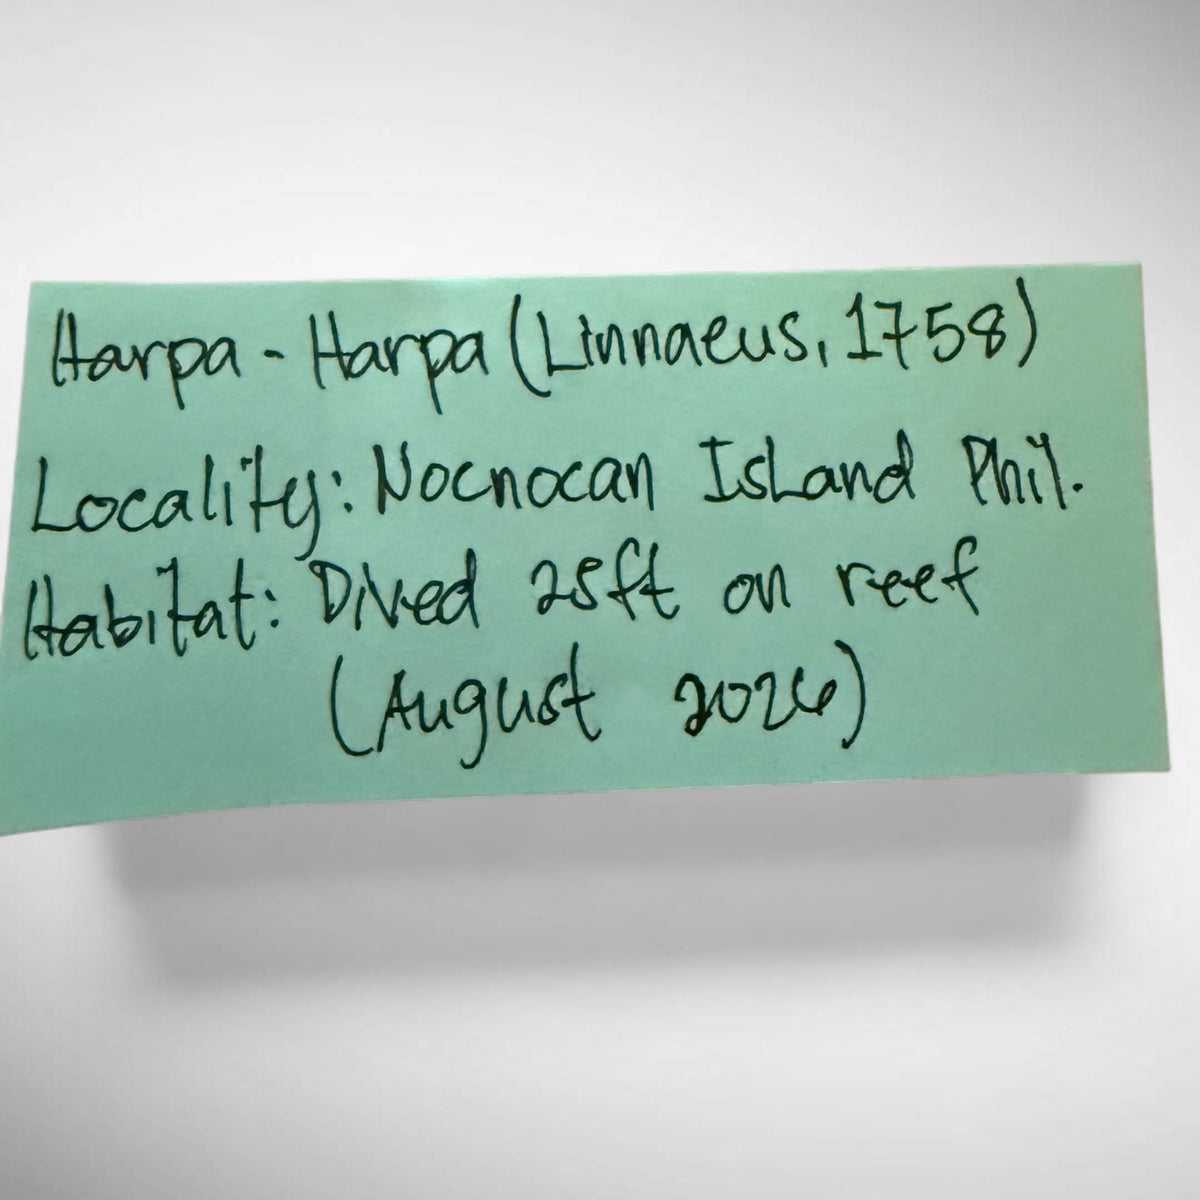 Harpa - Harpa (Linnaeus, 1758)
Locality: Nocnocan Island Phil.
Habitat: Dived 25ft on reef
(August 2026)